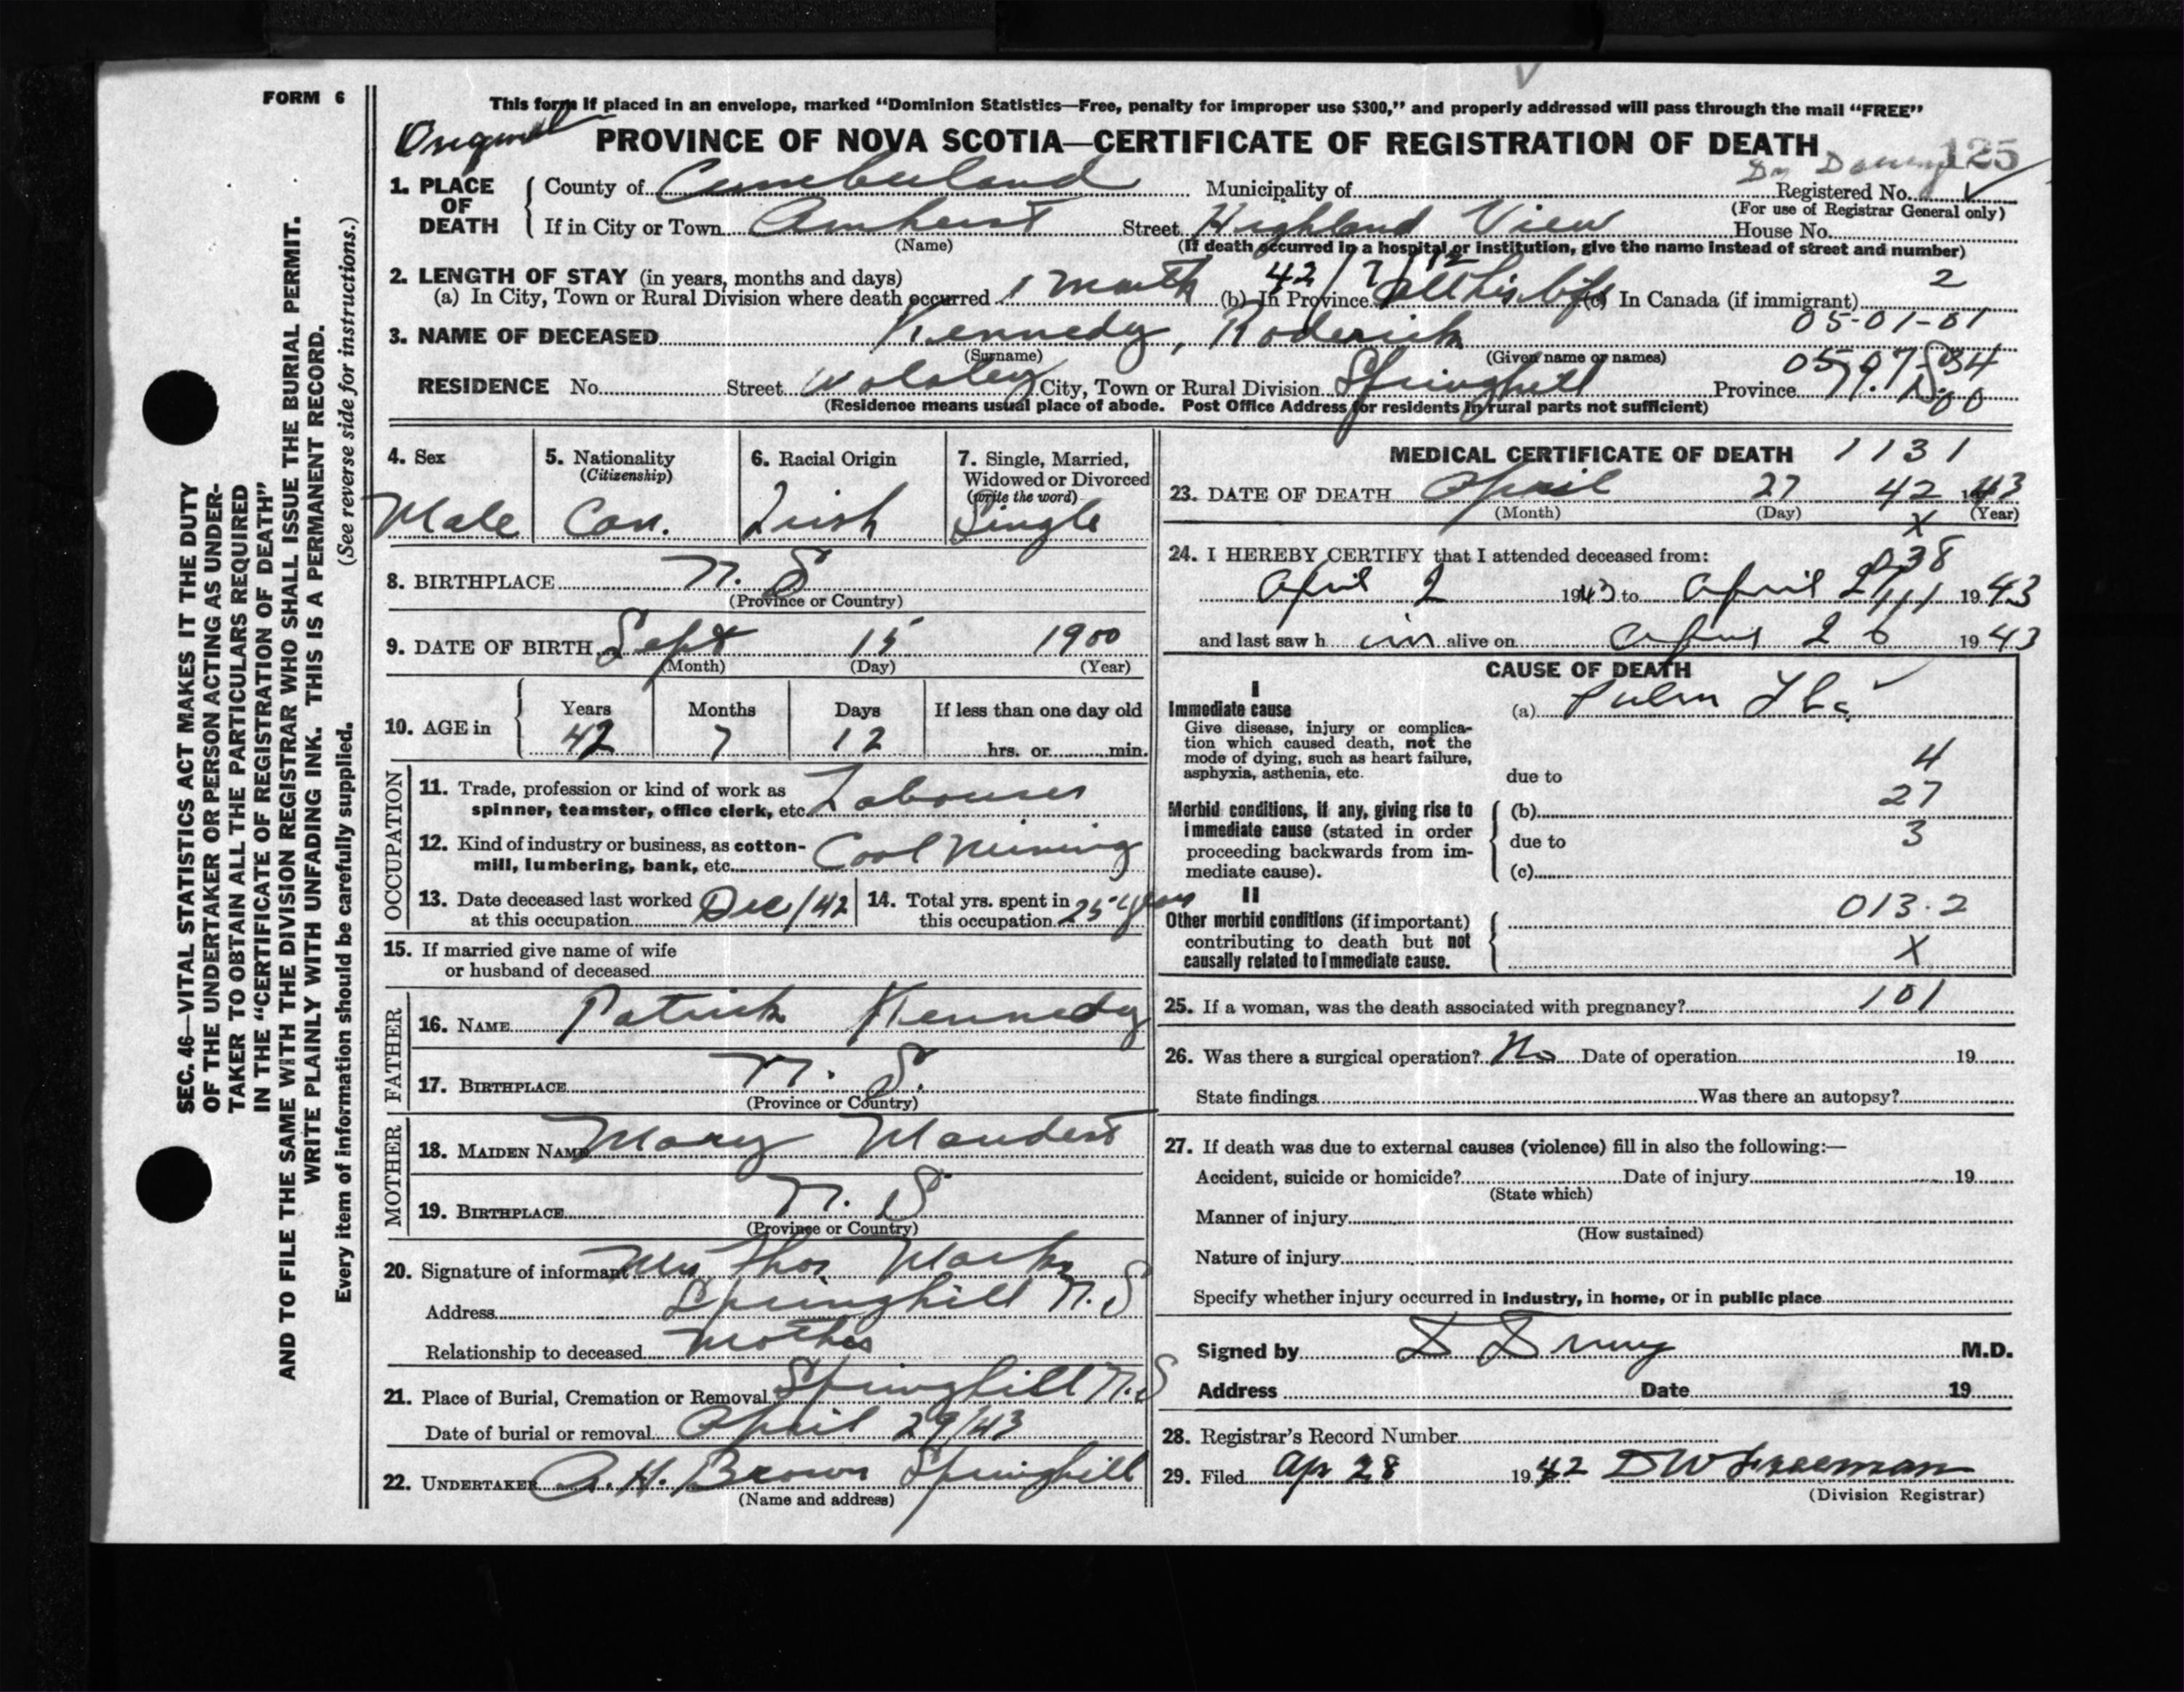 FORM 6
This form if placed in an envelope, marked "Dominion Statistics—Free, penalty for improper use $300," and properly addressed will pass through the mail "FREE"
Original
PROVINCE OF NOVA SCOTIA—CERTIFICATE OF REGISTRATION OF DEATH
125
1. PLACE OF DEATH
County of Cumberland Municipality of Registered No.
(For use of Registrar General only)
If in City or Town Amherst Street Highland View House No.
(Name) (If death occurred in a hospital or institution, give the name instead of street and number)
2. LENGTH OF STAY (in years, months and days) 42/7/12 2
(a) In City, Town or Rural Division where death occurred 1 month (b) In Province all his life (c) In Canada (if immigrant)
05-01-01
3. NAME OF DECEASED Kennedy, Roderick
(Surname) (Given name or names)
RESIDENCE No. Street City, Town or Rural Division Springhill Province
(Residence means usual place of abode. Post Office Address for residents in rural parts not sufficient)
4. Sex
Male
5. Nationality
(Citizenship)
Can.
6. Racial Origin
Irish
7. Single, Married, Widowed or Divorced
(write the word)
Single
8. BIRTHPLACE N. S
(Province or Country)
9. DATE OF BIRTH Sept 15 1900
(Month) (Day) (Year)
10. AGE in
Years Months Days If less than one day old
42 7 12 hrs. or min.
OCCUPATION
11. Trade, profession or kind of work as
spinner, teamster, office clerk, etc. Labourer
12. Kind of industry or business, as cotton-
mill, lumbering, bank, etc. Coal Mining
13. Date deceased last worked
at this occupation Dec/42
14. Total yrs. spent in
this occupation 25 years
15. If married give name of wife
or husband of deceased
FATHER
16. NAME Patrick Kennedy
17. BIRTHPLACE N. S.
(Province or Country)
MOTHER
18. MAIDEN NAME Mary
19. BIRTHPLACE N. S
(Province or Country)
20. Signature of informant Mrs Thos
Address Springhill N. S
Relationship to deceased Mother
21. Place of Burial, Cremation or Removal Springhill N. S
Date of burial or removal April 29/43
22. UNDERTAKER A. H. Brown Springhill
(Name and address)
MEDICAL CERTIFICATE OF DEATH 1131
23. DATE OF DEATH April 27 42 43
(Month) (Day) (Year)
X
24. I HEREBY CERTIFY that I attended deceased from:
038
April 2 1943 to April 19 43
and last saw h im alive on April 26 19 43
CAUSE OF DEATH
I
Immediate cause
Give disease, injury or complica-
tion which caused death, not the
mode of dying, such as heart failure,
asphyxia, asthenia, etc.
(a) Pulm Tbc
4
due to
27
Morbid conditions, if any, giving rise to
immediate cause (stated in order
proceeding backwards from im-
mediate cause).
(b)
due to 3
(c)
II
Other morbid conditions (if important)
contributing to death but not
causally related to immediate cause.
013.2
X
25. If a woman, was the death associated with pregnancy? 101
26. Was there a surgical operation? No Date of operation 19
State findings Was there an autopsy?
27. If death was due to external causes (violence) fill in also the following:—
Accident, suicide or homicide? Date of injury 19
(State which)
Manner of injury
(How sustained)
Nature of injury
Specify whether injury occurred in industry, in home, or in public place
Signed by M.D.
Address Date 19
28. Registrar's Record Number
29. Filed Apr 28 1942 D W Freeman
(Division Registrar)
SEC. 46—VITAL STATISTICS ACT MAKES IT THE DUTY
OF THE UNDERTAKER OR PERSON ACTING AS UNDER-
TAKER TO OBTAIN ALL THE PARTICULARS REQUIRED
IN THE "CERTIFICATE OF REGISTRATION OF DEATH"
AND TO FILE THE SAME WITH THE DIVISION REGISTRAR WHO SHALL ISSUE THE BURIAL PERMIT.
WRITE PLAINLY WITH UNFADING INK. THIS IS A PERMANENT RECORD.
Every item of information should be carefully supplied. (See reverse side for instructions.)